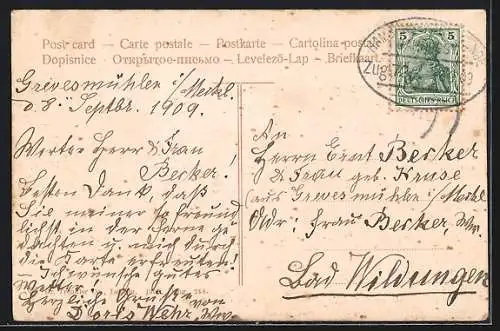 Post card – Carte postale – Postkarte – Cartolina postale
Dopisnice – Открытое-письмо – Levelező-Lap – Briefkaart
5 5
DEUTSCHES REICH
Zug
Grevesmühlen i/Meckl.
d. 8. Septbr. 1909.
Werter Herr & Frau
Becker!
Besten Dank, daß
Sie meiner so freund
lichst in der Ferne ge
dachten u. mich durch
die Karte erfreuten!
Wünsche gutes
Wetter!
Herzliche Grüße von
Doris Wehr Ww.
An
Herrn Ernst Becker
& Frau geb. Kruse
(aus Grevesmühlen i/Meckl.
Adr: Frau Becker, Ww.
Bad Wildungen